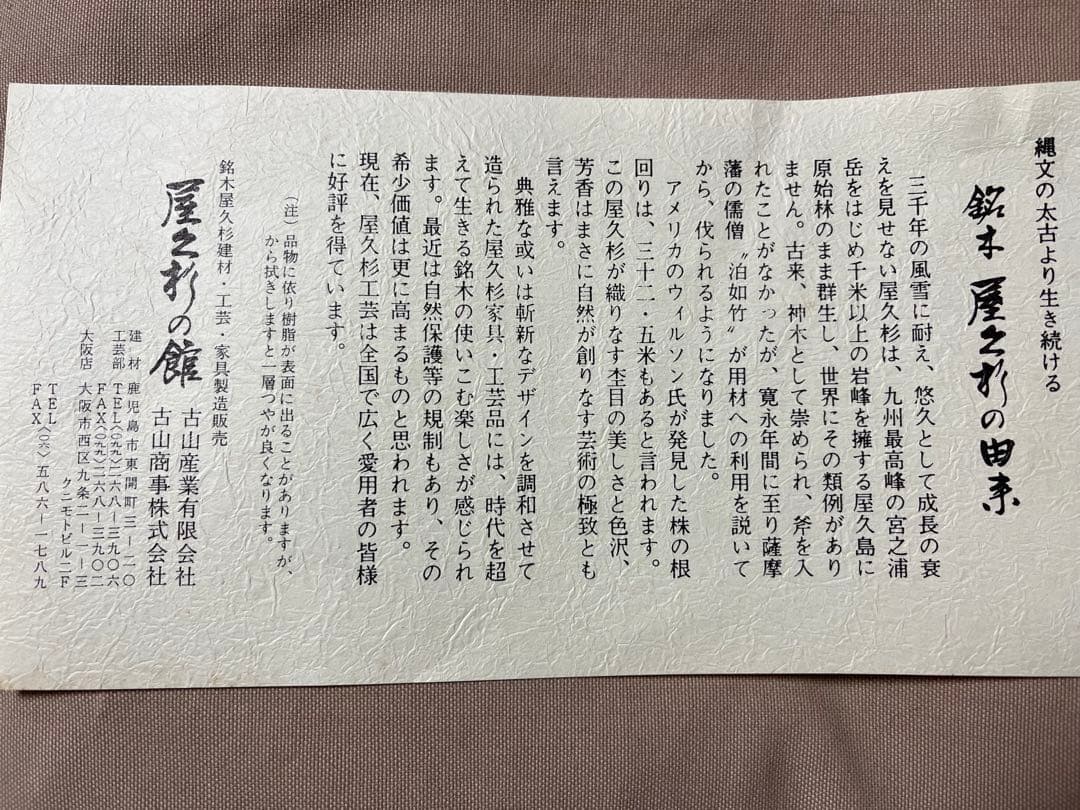 縄文の太古より生き続ける
銘木 屋久杉の由来
三千年の風雪に耐え、悠久として成長の衰
えを見せない屋久杉は、九州最高峰の宮之浦
岳をはじめ千米以上の岩峰を擁する屋久島に
原始林のまま群生し、世界にその類例があり
ません。古来、神木として崇められ、斧を入
れたことがなかったが、寛永年間に至り薩摩
藩の儒僧〝泊如竹〟が用材への利用を説いて
から、伐られるようになりました。
アメリカのウィルソン氏が発見した株の根
回りは、三十二・五米もあると言われます。
この屋久杉が織りなす杢目の美しさと色沢、
芳香はまさに自然が創りなす芸術の極致とも
言えます。
典雅な或いは斬新なデザインを調和させて
造られた屋久杉家具・工芸品には、時代を超
えて生きる銘木の使いこむ楽しさが感じられ
ます。最近は自然保護等の規制もあり、その
希少価値は更に高まるものと思われます。
現在、屋久杉工芸は全国で広く愛用者の皆様
に好評を得ています。
(注)品物に依り樹脂が表面に出ることがありますが、
から拭きしますと一層つやが良くなります。
銘木屋久杉建材・工芸・家具製造販売
屋久杉の館
古山産業有限会社
古山商事株式会社
建材 鹿児島市東開町三ー二〇
工芸部 TEL(〇九九)二六八ー三九〇六
FAX(〇九九)二六八ー三九〇二
大阪店 大阪市西区九条二ー一ー三
クニモトビル二F
TEL(〇六)五八六ー一七八九
FAX